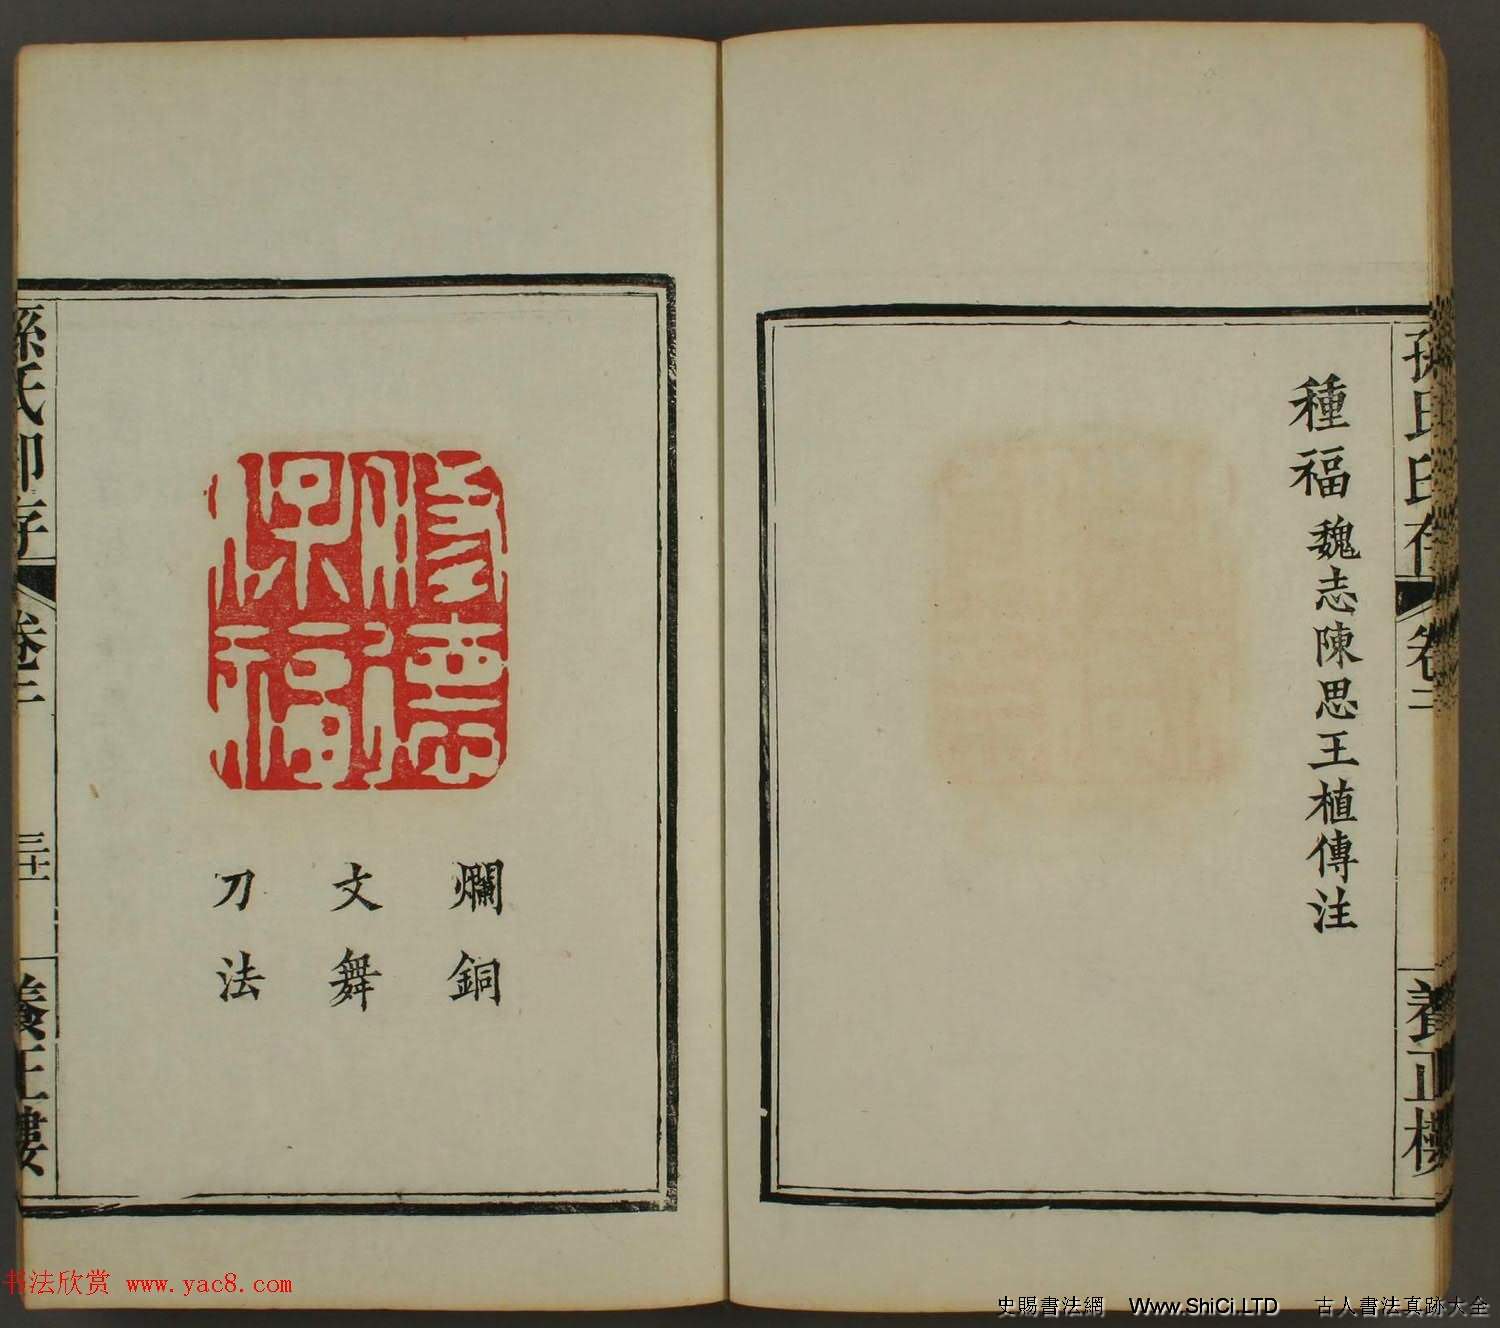 孫氏印存
卷二
養正樓
種福 魏志陳思王植傳注
修德
保福
爛銅
文舞
刀法
孫氏印存
卷二
三十
養正樓
书法欣赏 www.yac8.com
史賜書法網 Www.ShiCi.LTD 古人書法真跡大全